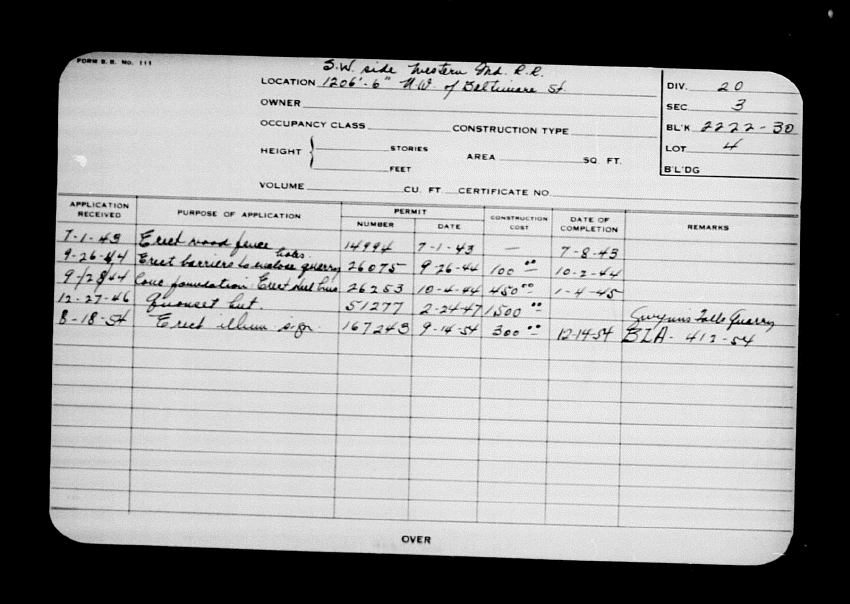 FORM B. B. NO. 111
S.W. side Western Md. R.R.
LOCATION 1206'-6" N.W. of Baltimore St.
OWNER
OCCUPANCY CLASS CONSTRUCTION TYPE
HEIGHT { STORIES FEET AREA SQ. FT.
VOLUME CU. FT. CERTIFICATE NO.
DIV. 20
SEC. 3
BL'K 2222-30
LOT 4
B'L'DG
APPLICATION RECEIVED PURPOSE OF APPLICATION PERMIT NUMBER DATE CONSTRUCTION COST DATE OF COMPLETION REMARKS
7-1-43 Erect wood fence 14994 7-1-43 — 7-8-43
9-26-44 Erect barriers to enclose quarry holes. 26075 9-26-44 100 00 10-2-44
9/28/44 Conc foundation. Erect 26253 10-4-44 450 00 1-4-45
12-27-46 Quonset hut. 51277 2-24-47 1500 00 Gwynns Falls Quarry
8-18-54 Erect illum sign. 167243 9-14-54 300 00 12-14-54 BZA- 412-54
OVER